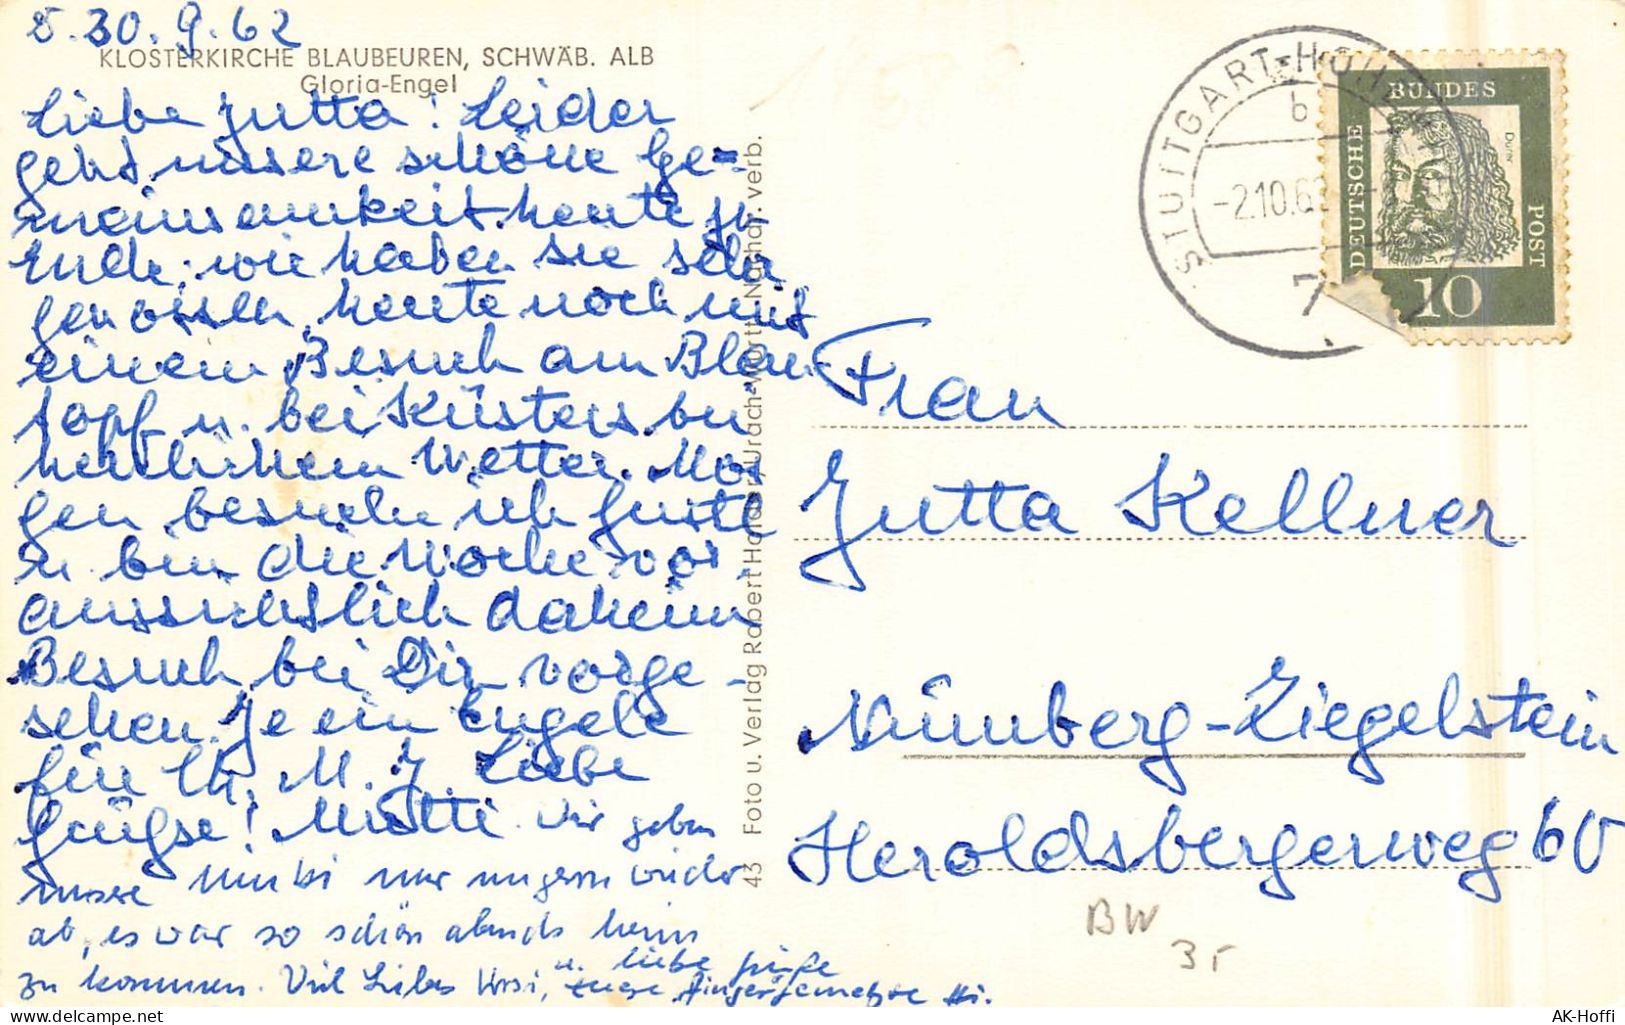 30.9.62
KLOSTERKIRCHE BLAUBEUREN, SCHWÄB. ALB
Gloria-Engel
Liebe Jutta! Leider
geht unsere schöne Ge=
meinsamkeit heute zu
Ende; wir haben sie sehr
genossen, heute noch mit
einem Besuch am Blau
topf u. bei Küsters bei
herrlichem Wetter. Mor
gen besuche ich Gustl
u. bin die Woche vor.
aussichtlich daheim
Besuch bei Dir vorge-
sehen. Je ein Engele
für Ch. M. J. Liebe
Grüße! Mutti. Wir geben
unsere nur ungern wieder
ab, es war so schön abends heim
zu kommen. Viel Liebes
u. liebe Grüße
43 Foto u. Verlag Robert Holder, Urach-Württ. Nachdr. verb.
STUTTGART-
b
-2.10.62
7
DEUTSCHE
BUNDES
POST
Dürer
10
Frau
Jutta Kellner
Nürnberg-Ziegelstein
Heroldsbergerweg 60
BW
AK-Hoffi
www.delcampe.net